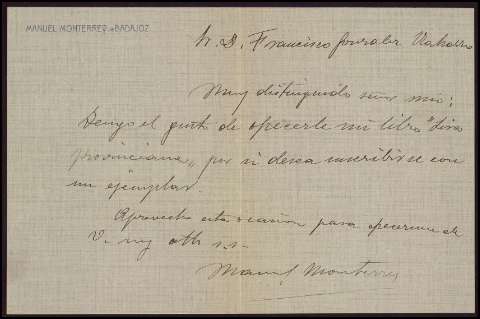 MANUEL MONTERREY-BADAJOZ
Sr. D. Francisco
Muy distinguido señor mio:
Tengo el gusto de ofrecerle mi libro "Lira
provinciana" por si desea suscribirse con
un ejemplar.
Aprovecho esta ocasión para ofrecerme de
V. my att s.s.
Manuel Monterrey